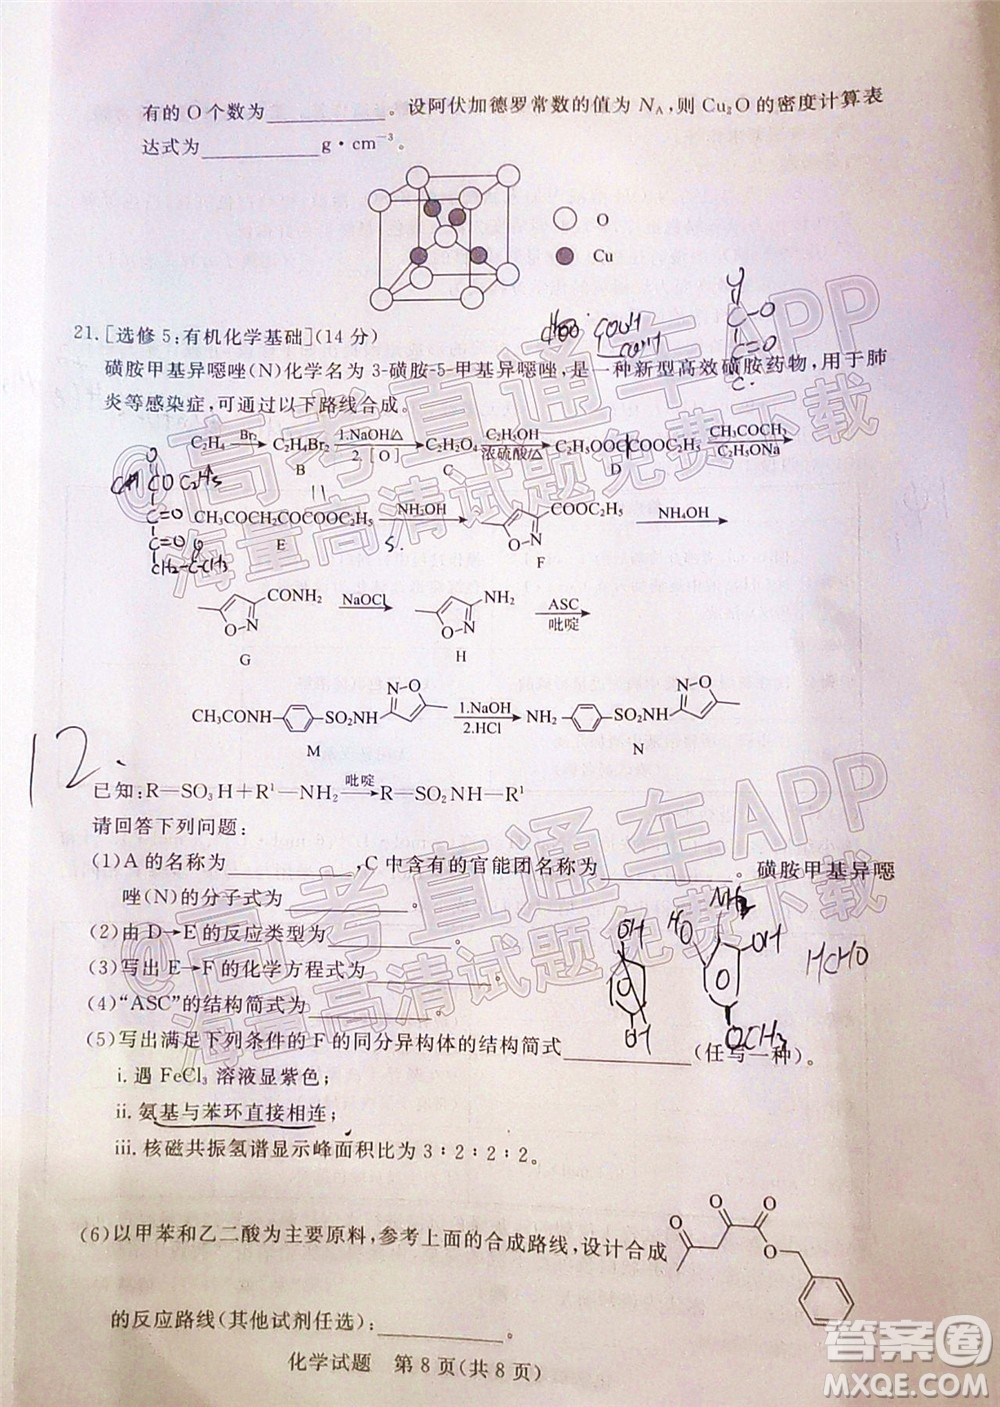 有的O个数为________。设阿伏加德罗常数的值为 N_A,则 Cu₂O 的密度计算表
达式为________g·cm⁻³。
O
Cu
21.[选修5:有机化学基础](14分)
磺胺甲基异噁唑(N)化学名为 3-磺胺-5-甲基异噁唑,是一种新型高效磺胺药物,用于肺
炎等感染症,可通过以下路线合成。
C₂H₄ Br₂ C₂H₄Br₂ 1.NaOH/△ 2.[O] C₂H₂O₄ C₂H₅OH 浓硫酸/△ C₂H₅OOCCOOC₂H₅ CH₃COCH₃ C₂H₅ONa
A B C D
CH₃COCH₂COCOOC₂H₅ NH₂OH COOC₂H₅ NH₄OH
O N
E F
CONH₂ NaOCl NH₂ ASC 吡啶
O N O N
G H
CH₃CONH SO₂NH N O 1.NaOH 2.HCl NH₂ SO₂NH N O
M N
12.
已知:R—SO₃H+R¹—NH₂ 吡啶 R—SO₂NH—R¹
请回答下列问题:
(1)A 的名称为________,C 中含有的官能团名称为________。磺胺甲基异噁
唑(N)的分子式为________。
(2)由 D→E 的反应类型为________。
(3)写出 E→F 的化学方程式为________。
(4)“ASC”的结构简式为________。
(5)写出满足下列条件的 F 的同分异构体的结构简式________(任写一种)。
OH
OH
HO
NH₂
OH
OCH₃
HCHO
ⅰ.遇 FeCl₃ 溶液显紫色;
ⅱ.氨基与苯环直接相连;
ⅲ.核磁共振氢谱显示峰面积比为 3:2:2:2。
(6)以甲苯和乙二酸为主要原料,参考上面的合成路线,设计合成
O O O O
的反应路线(其他试剂任选):________。
化学试题 第 8 页(共 8 页)
@高考直通车APP
海量高清试题免费下载
@高考直通车APP
海量高清试题免费下载
答案圈
MXQE.COM